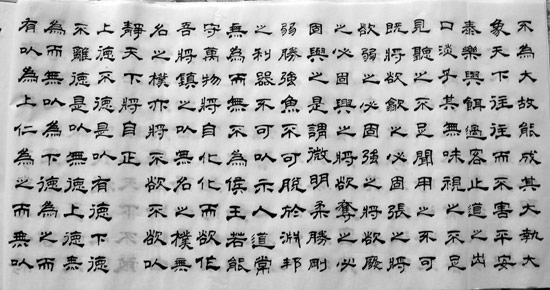 不為大故能成其大執大
象天下往往而不害平安
泰樂與餌過客止道之出
口淡乎其無味視之不足
見聽之不足聞用之不可
既將欲歙之必固張之將
欲弱之必固強之將欲廢
之必固興之將欲奪之必
固與之是謂微明柔勝剛
弱勝強魚不可脫於淵邦
之利器不可以示人道常
無為而無不為侯王若能
守萬物將自化化而欲作
吾將鎮之以無名之樸無
名之樸亦將不欲不欲以
靜天下將自正
上德不德是以有德下德
不離德是以無德上德無
為而無以為下德為之而
有以為上仁為之而無以